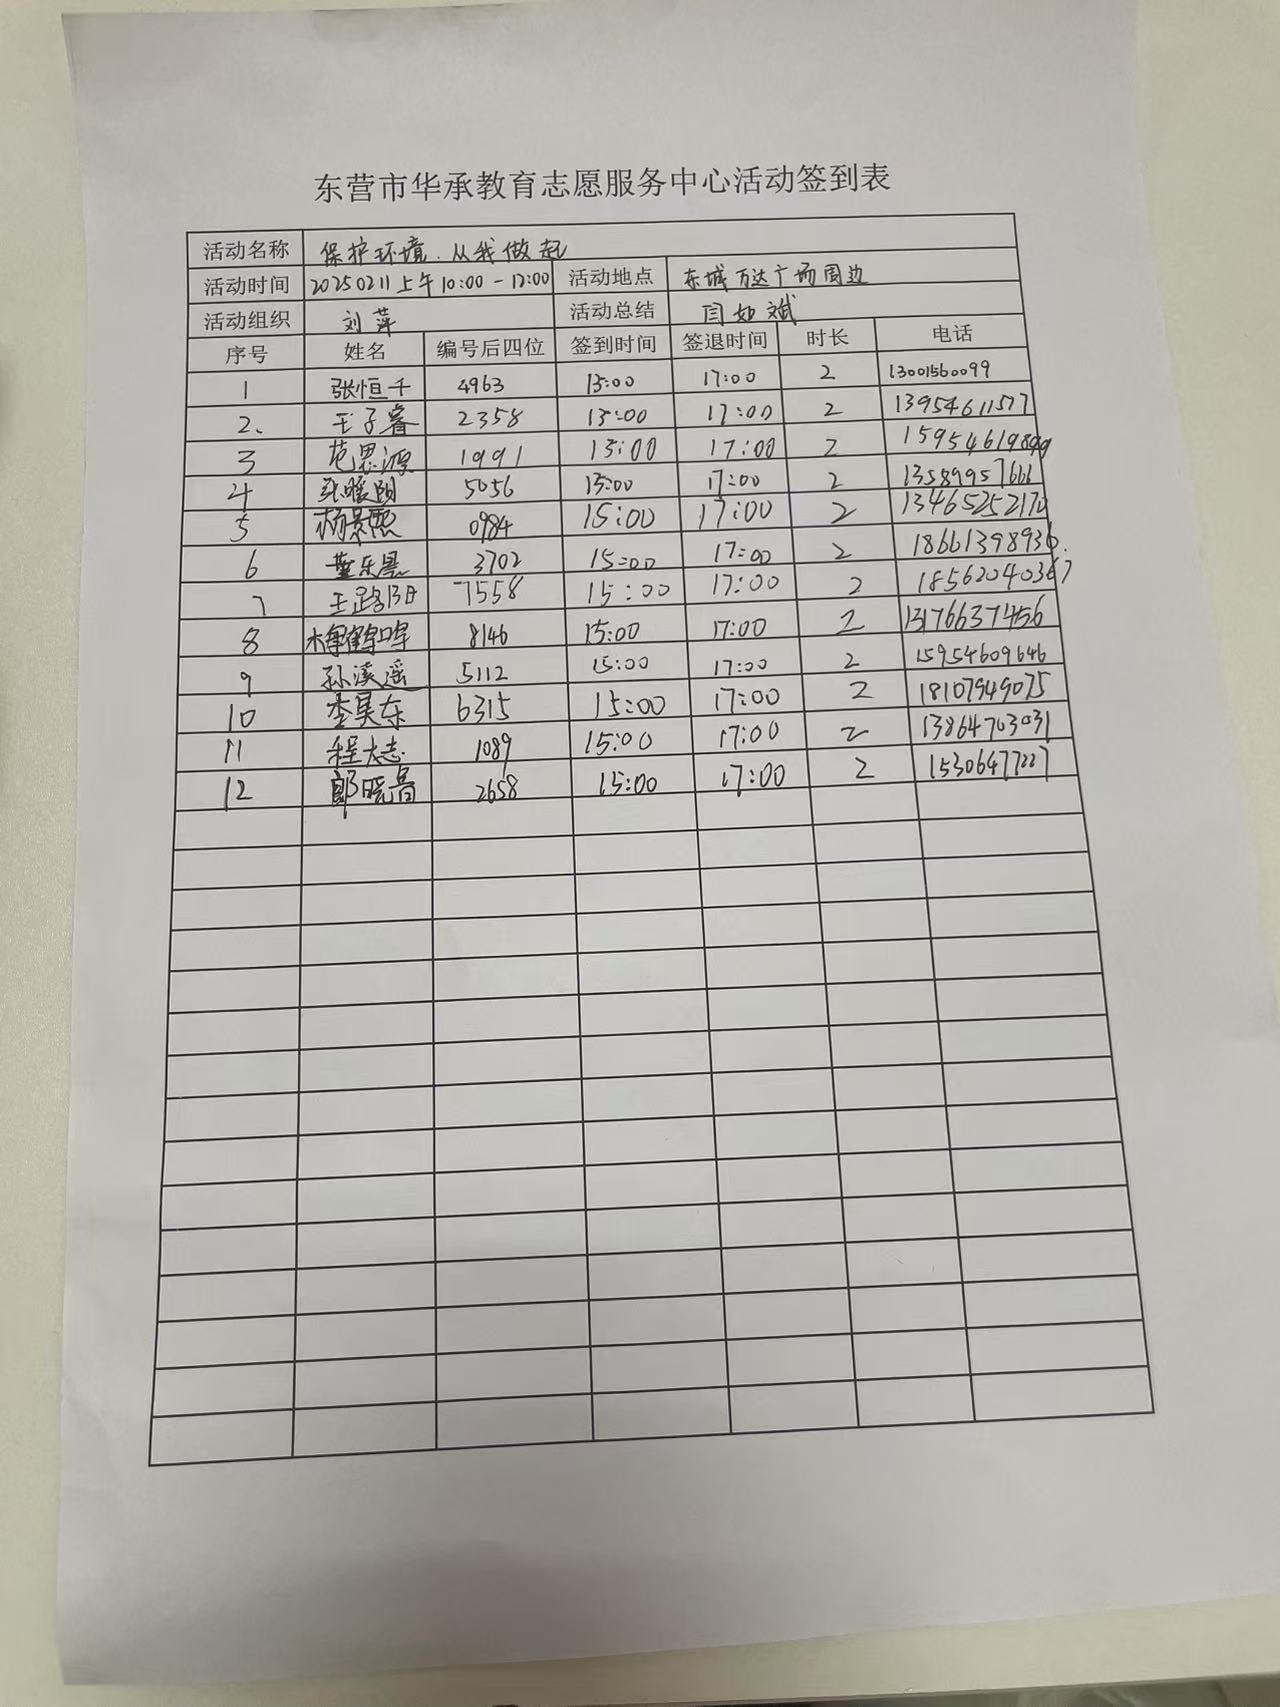 东营市华承教育志愿服务中心活动签到表
活动名称 保护环境.从我做起
活动时间 20250211上午10:00-12:00 活动地点 东城万达广场周边
活动组织 刘萍 活动总结 闫如斌
序号 姓名 编号后四位 签到时间 签退时间 时长 电话
1 张恒千 4963 15:00 17:00 2 13001560099
2. 王子睿 2358 15:00 17:00 2 13954611577
3 范思源 1991 15:00 17:00 2 15954619899
4 张暖阳 5056 15:00 17:00 2 13589957666
5 杨景熙 0984 15:00 17:00 2 1346525217
6 董乐恩 3702 15:00 17:00 2 18661398936.
7 王路阳 7558 15:00 17:00 2 18562040367
8 8146 15:00 17:00 2 13176637456
9 孙溪遥 5112 15:00 17:00 2 15954609646
10 李昊东 6315 15:00 17:00 2 18107949075
11 程大志 1089 15:00 17:00 2 13864703031
12 郎晓高 2658 15:00 17:00 2 15306477227